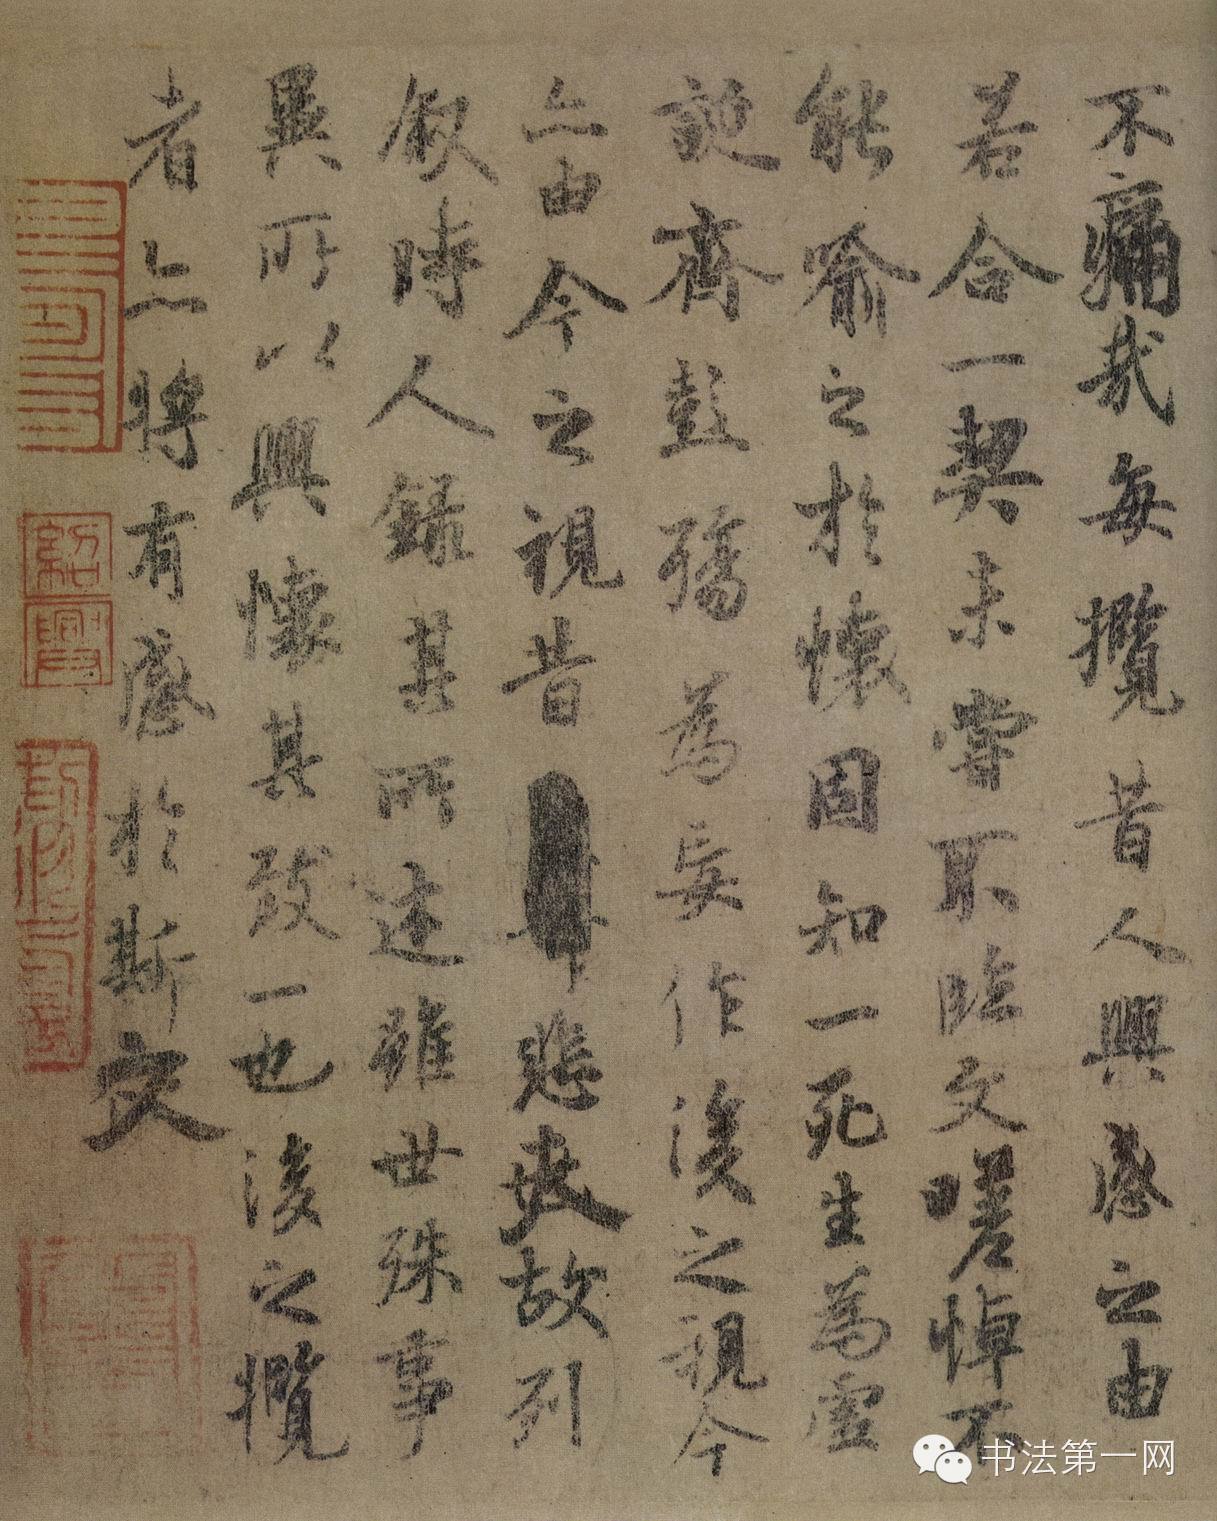 不痛哉每攬昔人興感之由
若合一契未嘗不臨文嗟悼不
能喻之於懷固知一死生為虛
誕齊彭殤為妄作後之視今
亦由今之視昔悲夫故列
叙時人錄其所述雖世殊事
異所以興懷其致一也後之攬
者亦將有感於斯文
紹興
书法第一网